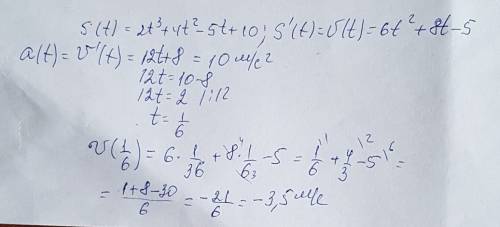 S(t) = 2t³+4t²-5t+10; S'(t)=v(t)=6t²+8t-5
a(t)=v'(t)=12t+8 = 10 м/с²
12t=10-8
12t=2 |:12
t=1/6
v(1/6)=6·1/36+8\⁴·1/6₃-5=1/6\¹+4/3\²-5\⁶=
=(1+8-30)/6=-21/6=-3,5 м/с